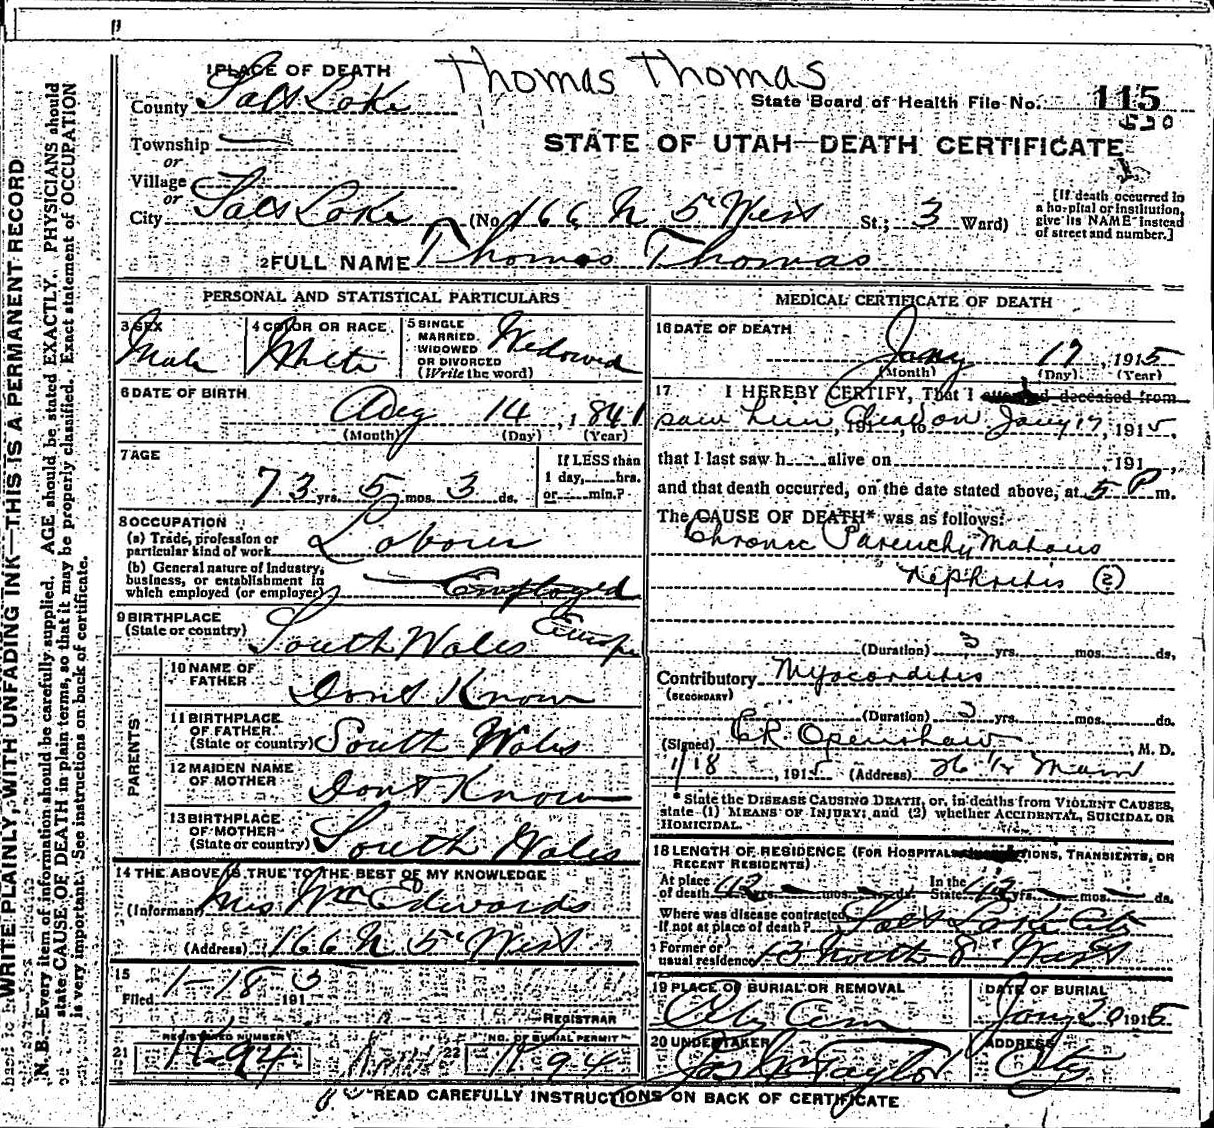 Thomas Thomas
1 PLACE OF DEATH
County Salt Lake
State Board of Health File No. 115
530
Township
or
STATE OF UTAH—DEATH CERTIFICATE
Village
or
City Salt Lake (No. 166 N 5" West St.; 3 Ward)
[If death occurred in
a hospital or institution,
give its NAME instead
of street and number.]
2 FULL NAME Thomas Thomas
PERSONAL AND STATISTICAL PARTICULARS
3 SEX
Male
4 COLOR OR RACE
White
5 SINGLE
MARRIED
WIDOWED
OR DIVORCED
(Write the word)
Widowed
6 DATE OF BIRTH
Aug 14, 1841
(Month) (Day) (Year)
7 AGE
73 yrs. 5 mos. 3 ds.
If LESS than
1 day,......hrs.
or......min.?
8 OCCUPATION
(a) Trade, profession or
particular kind of work Labour
(b) General nature of Industry,
business, or establishment in
which employed (or employer) Employed
9 BIRTHPLACE
(State or country) South Wales Europe
PARENTS
10 NAME OF
FATHER Dont Know
11 BIRTHPLACE
OF FATHER
(State or country) South Wales
12 MAIDEN NAME
OF MOTHER Dont Know
13 BIRTHPLACE
OF MOTHER
(State or country) South Wales
14 THE ABOVE IS TRUE TO THE BEST OF MY KNOWLEDGE
(Informant) Mrs Wm Edwards
(Address) 166 N 5" West
15
Filed 1-18 5 191
REGISTRAR
REGISTERED NUMBER
21 H-94
NO. OF BURIAL PERMIT
22 H 94
MEDICAL CERTIFICATE OF DEATH
16 DATE OF DEATH
Jany 17, 1915
(Month) (Day) (Year)
17 I HEREBY CERTIFY, That I attended deceased from
saw him dead on Jany 17, 1915,
that I last saw h...... alive on , 191 ,
and that death occurred, on the date stated above, at 5 P m.
The CAUSE OF DEATH* was as follows:
Chronic Parenchymatous
Nephritis (2)
(Duration) 3 yrs. mos. ds.
Contributory Myocarditis
(SECONDARY)
(Duration) 3 yrs. mos. ds.
(Signed) C.R. Openshaw, M. D.
1/18, 1915 (Address) 26 1/2 Main
* State the DISEASE CAUSING DEATH, or, in deaths from VIOLENT CAUSES,
state (1) MEANS OF INJURY; and (2) whether ACCIDENTAL, SUICIDAL OR
HOMICIDAL.
18 LENGTH OF RESIDENCE (FOR HOSPITALS, INSTITUTIONS, TRANSIENTS, OR
RECENT RESIDENTS)
At place
of death 42 yrs. mos. ds. In the
State 42 yrs. mos. ds.
Where was disease contracted
if not at place of death? Salt Lake City
Former or
usual residence 13 North 8" West
19 PLACE OF BURIAL OR REMOVAL
City Cem
DATE OF BURIAL
Jany 20 1915
20 UNDERTAKER
Jos Wm Taylor
ADDRESS
City
READ CAREFULLY INSTRUCTIONS ON BACK OF CERTIFICATE
WRITE PLAINLY, WITH UNFADING INK—THIS IS A PERMANENT RECORD
N. B.—Every item of information should be carefully supplied. AGE should be stated EXACTLY. PHYSICIANS should
state CAUSE OF DEATH in plain terms, so that it may be properly classified. Exact statement of OCCUPATION
is very important. See instructions on back of certificate.